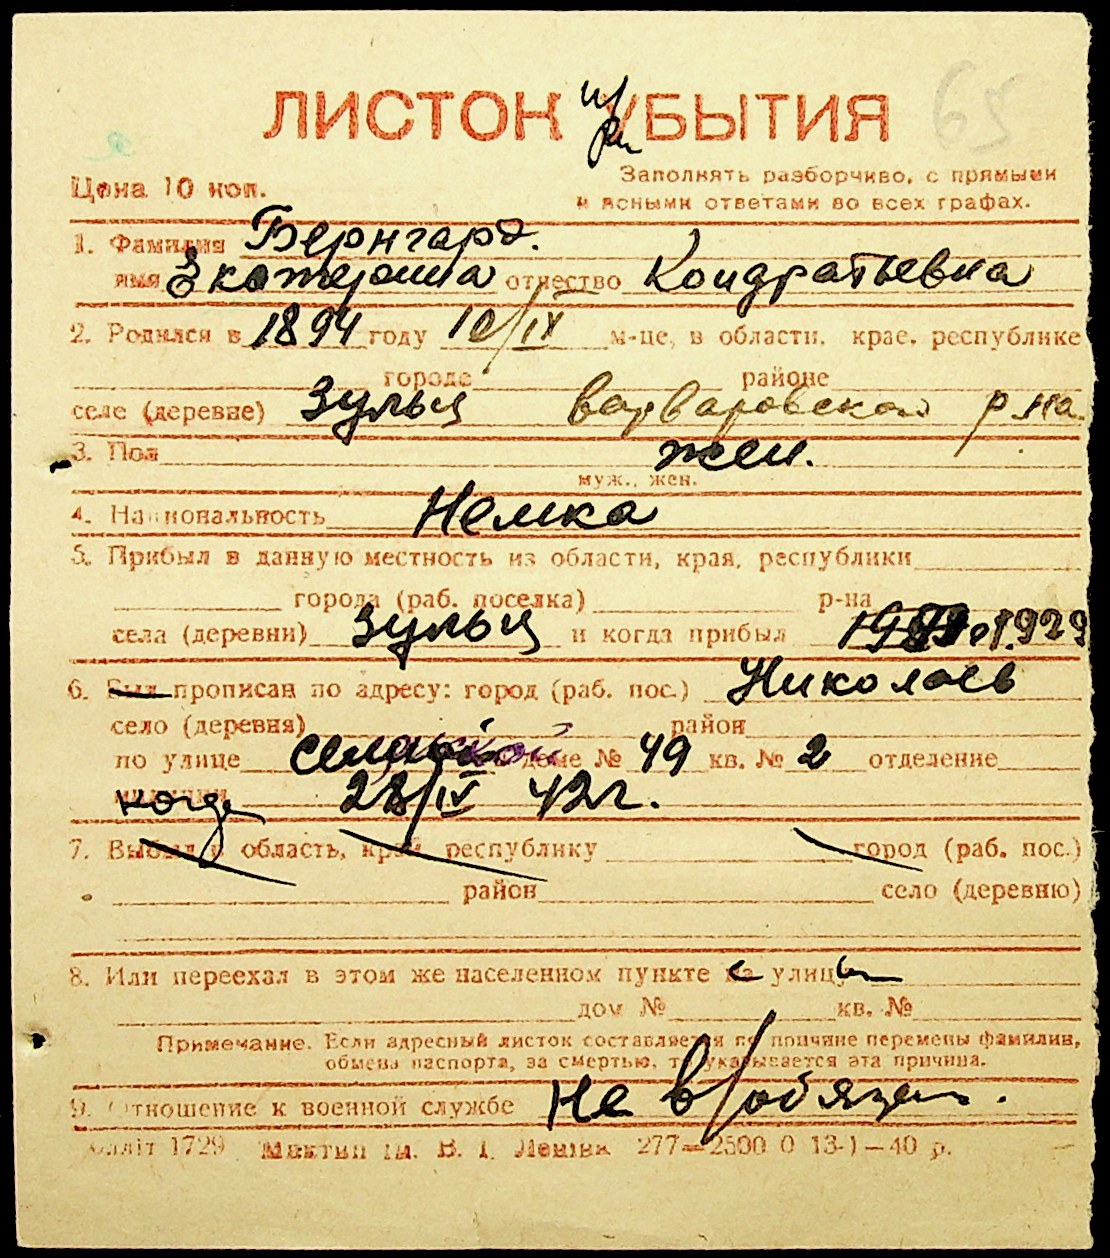 65
ЛИСТОК УБЫТИЯ
при
Цена 10 коп.
Заполнять разборчиво, с прямыми
и ясными ответами во всех графах.
1. Фамилия Бернгард.
имя Екатерина отчество Кондратьевна
2. Родился в 1894 году 10/IX м-це, в области, крае, республике
городе районе
селе (деревне) Зульц Варваровского р-на.
3. Пол жен.
муж., жен.
4. Национальность Немка
5. Прибыл в данную местность из области, края, республики
города (раб. поселка) р-на
села (деревни) Зульц и когда прибыл 1929
6. Был прописан по адресу: город (раб. пос.) Николаев
село (деревня) район
по улице доме № 49 кв. № 2 отделение
милиции
когда 28/IV 42 г.
7. Выбыл в область, край, республику город (раб. пос.)
район село (деревню)
8. Или переехал в этом же населенном пункте с улицы
дом № кв. №
Примечание. Если адресный листок составляется по причине перемены фамилии,
обмена паспорта, за смертью, то указывается эта причина.
9. Отношение к военной службе Не в/обязан.
1729 В. І. Леніна 277—2500 0 13-I—40 р.